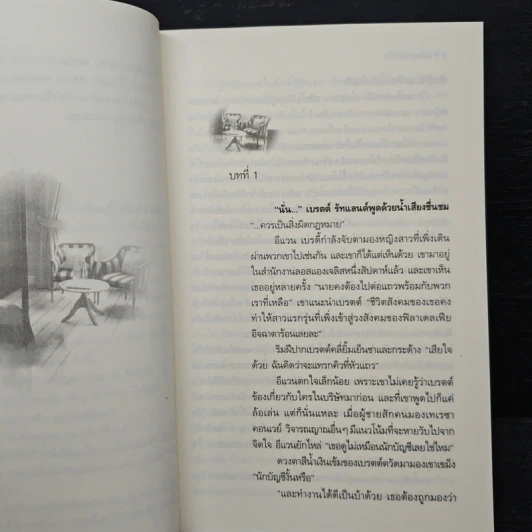 บทที่ 1
"นั่น..." เบรตต์ รัทแลนด์พูดด้วยน้ำเสียงชื่นชม
"...ควรเป็นสิ่งผิดกฎหมาย"
อีแวน เบรดี้กำลังจับตามองหญิงสาวที่เพิ่งเดิน
ผ่านพวกเขาไปเช่นกัน และเขาก็ได้แต่เห็นด้วย เขามาอยู่
ในสำนักงานลอสแองเจลิสหนึ่งสัปดาห์แล้ว และเขาเห็น
เธออยู่หลายครั้ง "นายคงต้องไปต่อแถวพร้อมกับพวก
เราที่เหลือ" เขาแนะนำเบรตต์ "ชีวิตสังคมของเธอคง
ทำให้สาวแรกรุ่นที่เพิ่งเข้าสู่วงสังคมของฟิลาเดลเฟีย
อิจฉาตาร้อนเลยละ"
ริมฝีปากเบรตต์คลี่ยิ้มเย็นชาและกระด้าง "เสียใจ
ด้วย ฉันคิดว่าจะแทรกคิวที่หัวแถว"
อีแวนตกใจเล็กน้อย เพราะเขาไม่เคยรู้ว่าเบรตต์
ข้องเกี่ยวกับใครในบริษัทมาก่อน และที่เขาพูดไปก็แค่
ล้อเล่น แต่ก็นั่นแหละ เมื่อผู้ชายสักคนมองเทเรซา
คอนเวย์ วิจารณญาณอื่นๆ มีแนวโน้มที่จะหายวับไปจาก
จิตใจ อีแวนยักไหล่ "เธอดูไม่เหมือนนักบัญชีเลยใช่ไหม"
ดวงตาสีน้ำเงินเข้มของเบรตต์ตวัดมามองเขาเขม็ง
"นักบัญชีงั้นหรือ"
"และทำงานได้ดีเป็นบ้าด้วย เธอต้องถูกมองว่า